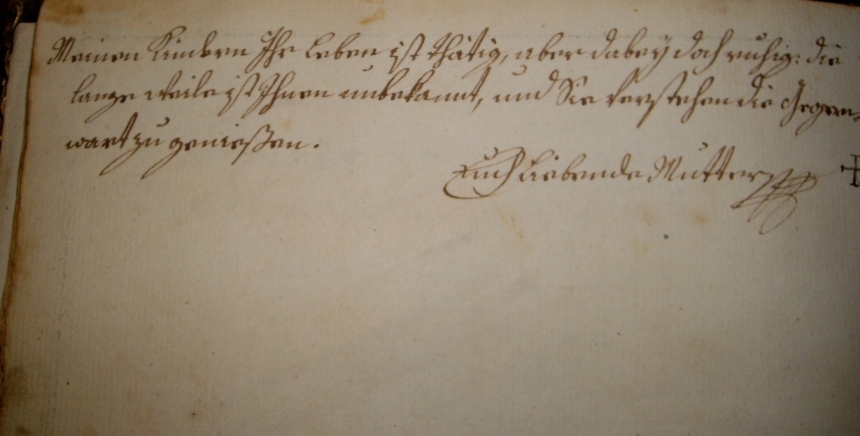 Meinen Kindern Ihr Leben ist thätig, aber dabeÿ doch ruhig: die
lange Weile ist Ihnen unbekannt, und Sie verstehen die Gegen-
wart zu genießen.
Euch Liebende Mutter